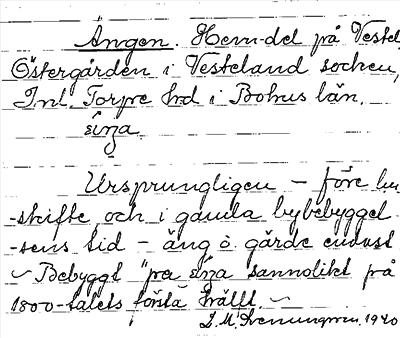 Ängen. Hem-del på Vestel
Östergården i Vesteland socken,
Inl. Torpe hd i Bohus län.
Ursprungligen – före
-skifte och i gamla bybebygget
-sens tid – äng o. gärde endast
Bebyggt sannolikt på
1800-talets första hälft.
1940